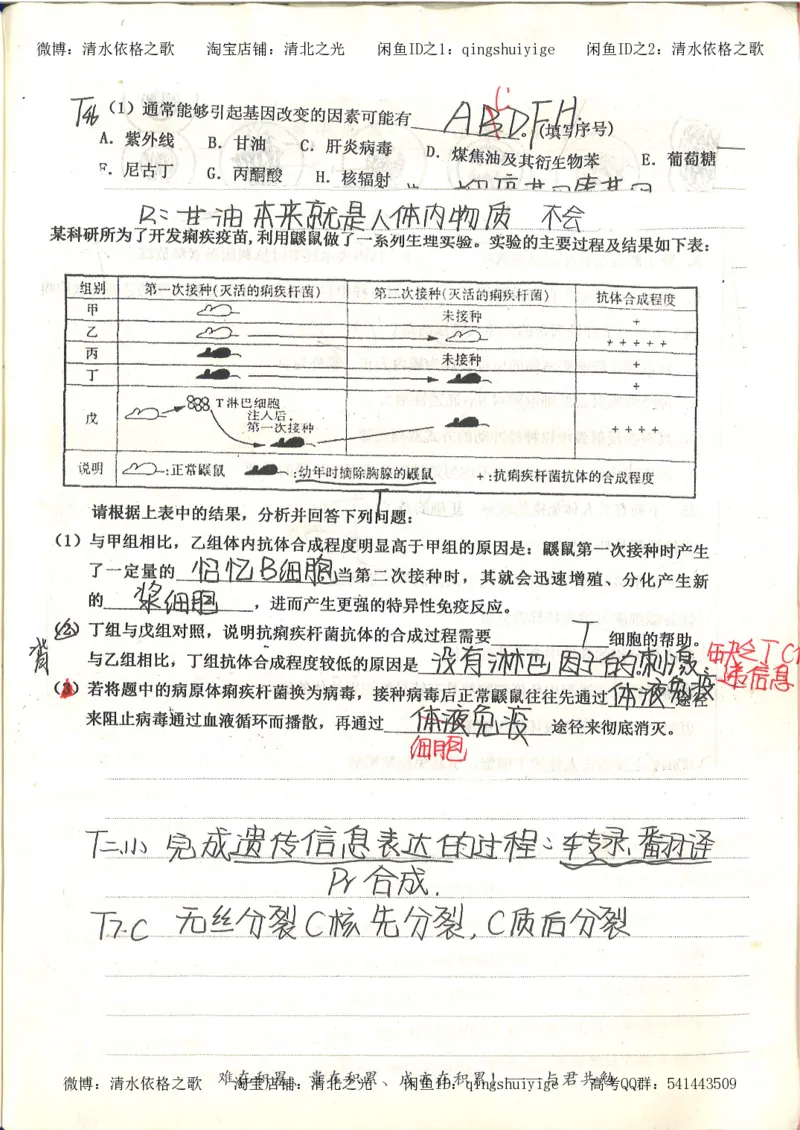 微博：清水依格之歌 淘宝店铺：清北之光 闲鱼ID之1：qingshuiyige 闲鱼ID之2：清水依格之歌
（1）通常能够引起基因改变的因素可能有 ABCDFH 。（填写序号）
A．紫外线 B．甘油 C．肝炎病毒 D．煤焦油及其衍生物苯 E．葡萄糖
F．尼古丁 G．丙酮酸 H．核辐射
B：甘油本来就是人体内物质 不会
某科研所为了开发痢疾疫苗，利用鼹鼠做了一系列生理实验。实验的主要过程及结果如下表：
组别 第一次接种(灭活的痢疾杆菌) 第二次接种(灭活的痢疾杆菌) 抗体合成程度
甲 未接种 +
乙 +++++
丙 未接种 +
丁 +
戊 T淋巴细胞 注入后，第一次接种 ++++
说明 :正常鼹鼠 :幼年时摘除胸腺的鼹鼠 +:抗痢疾杆菌抗体的合成程度
T
请根据上表中的结果，分析并回答下列问题：
（1）与甲组相比，乙组体内抗体合成程度明显高于甲组的原因是：鼹鼠第一次接种时产生
了一定量的 记忆B细胞 当第二次接种时，其就会迅速增殖、分化产生新
的 浆细胞 ，进而产生更强的特异性免疫反应。
（2）丁组与戊组对照，说明抗痢疾杆菌抗体的合成过程需要 T 细胞的帮助。
背 与乙组相比，丁组抗体合成程度较低的原因是 没有淋巴因子的刺激 缺乏TC传递信息
（3）若将题中的病原体痢疾杆菌换为病毒，接种病毒后正常鼹鼠往往先通过 体液免疫 途径
来阻止病毒通过血液循环而播散，再通过 体液免疫 途径来彻底消灭。
细胞
T二.小 完成遗传信息表达的过程：转录、翻译
Pr合成.
T7.C 无丝分裂C核先分裂，C质后分裂
难在积累、贵在积累、成亦在积累！——与君共勉
微博：清水依格之歌 淘宝店铺：清北之光 闲鱼ID：qingshuiyige 高考QQ群：541443509